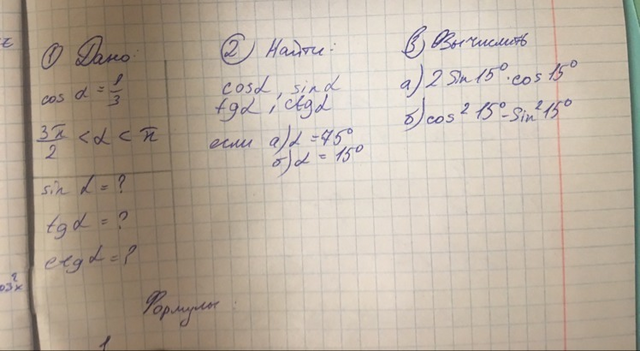 ① Дано:
cos α = 1/3
3π/2 < α < π
sin α = ?
tg α = ?
ctg α = ?
② Найти:
cos α, sin α
tg α, ctg α
если а) α = 75°
б) α = 15°
③ Вычислить
а) 2 sin 15° · cos 15°
б) cos² 15° - sin² 15°
Формулы:
1